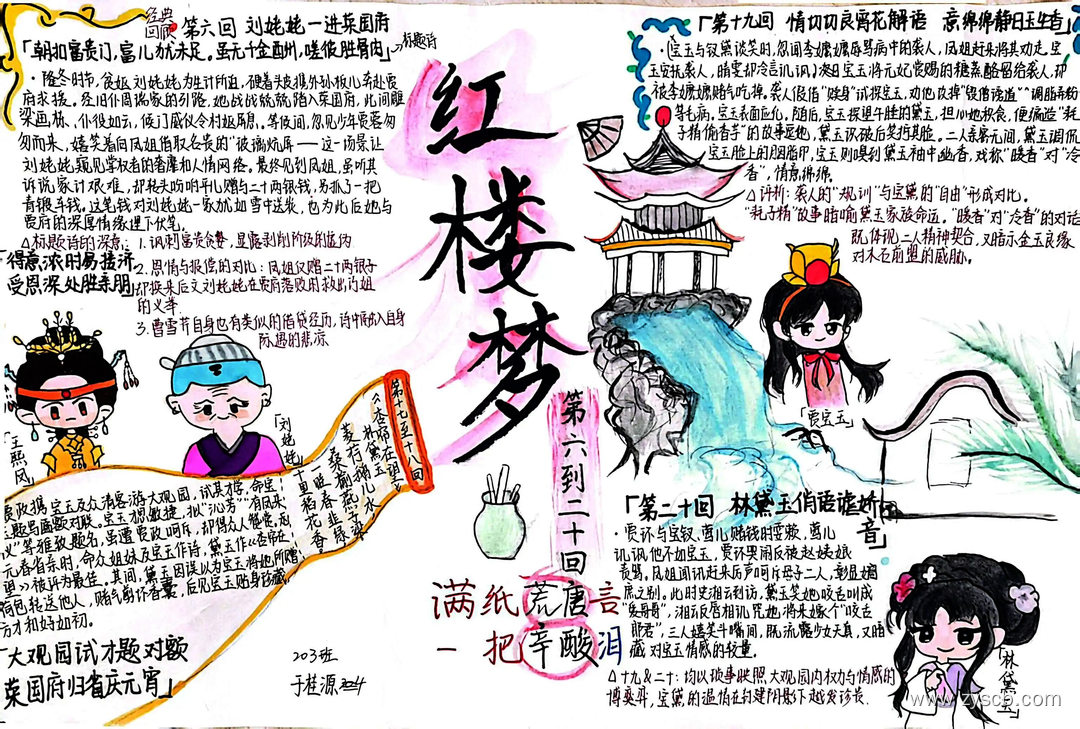 经典
回顾
第六回 刘姥姥一进荣国府
「朝扣富贵门,富儿犹未足。虽无千金酬,嗟彼胜骨肉」
标题诗
·隆冬时节,贫妪刘姥姥为生计所迫,硬着头皮携外孙板儿奔赴贾
府求援。经旧仆周瑞家的引路,她战战兢兢踏入荣国府,此间雕
梁画栋、仆役如云,侯门威仪令村妪屏息。等候间,忽见少年贾蓉匆
匆而来,嬉笑着向凤姐借取名贵的"玻璃炕屏——这一场景让
刘姥姥窥见掌权者的奢靡和人情网络。最终见到凤姐,虽听其
诉说家计艰难,却转头吩咐平儿赠与二十两银钱,另抓了一把
青银车钱。这笔钱对刘姥姥一家犹如雪中送炭,也为此后她与
贾府的深厚情缘埋下伏笔。
△标题诗的深意:
1.讽刺富贵贪婪,显露剥削阶级的益内
得意浓时易接济
受恩深处胜亲朋
2.恩情与报偿的对比:凤姐仅赠二十两银子
却换来后文刘姥姥在贾府落败时救出巧姐
的义举
3.曹雪芹自身也有类似的借贷经历,诗中融入自身
际遇的悲凉
「王熙凤」
「刘姥姥」
第十七至十八回
《杏帘在望》
林黛玉
菱荇鹅儿水
桑榆燕子梁
一畦春韭绿
十里稻花香
贾政携宝玉及众清客游大观园,试其才学,命宝
玉题写匾额对联。宝玉才思敏捷,拟"沁芳""有凤来
仪"等雅致题名,虽遭贾政呵斥,却得众人赞赏。后
元春省亲时,命众姐妹及宝玉作诗,黛玉作《杏帘在
望》被评为最佳。其间,黛玉因误以为宝玉将她所赠
荷包转送他人,赌气剪坏香囊,后见宝玉贴身珍藏,
方才和好如初。
「大观园试才题对额
荣国府归省庆元宵」
203班
于桂源 2024
红楼梦
第六到二十回
满纸荒唐言
一把辛酸泪
「第十九回 情切切良宵花解语 意绵绵静日玉生香」
·宝玉与宝钗谈笑时,忽闻李嬷嬷辱骂病中的袭人,凤姐赶来将其劝走。宝
玉安抚袭人,晴雯却冷言讥讽。次日宝玉将元妃赏赐的糖蒸酪留给袭人,却
被李嬷嬷赌气吃掉。袭人假借"赎身"试探宝玉,劝他改掉"毁僧谤道""调脂弄粉
等毛病,宝玉表面应允。随后,宝玉探望午睡的黛玉,担心她积食,便编造"耗
子精偷香芋"的故事逗她,黛玉识破后笑拧其脸。二人亲密无间,黛玉调侃
宝玉脸上的胭脂印,宝玉则嗅到黛玉袖中幽香,戏称"暖香"对"冷
香",情意绵绵。
△评析:袭人的"规训"与宝黛的"自由"形成对比。
"耗子精"故事暗喻黛玉家族命运。"暖香"对"冷香"的对话
既体现二人精神契合,又暗示金玉良缘
对木石前盟的威胁。
「贾宝玉」
「第二十回 林黛玉俏语谑娇
音」
·贾环与宝钗、莺儿赌钱时耍赖,莺儿
讥讽他不如宝玉,贾环哭闹反被赵姨娘
责骂。凤姐闻讯赶来厉声呵斥母子二人,彰显嫡
庶之别。此时史湘云到访,黛玉笑她咬舌叫成
"爱哥哥",湘云反唇相讥咒她将来嫁个"咬舌
郎君",三人嬉笑斗嘴间,既流露少女天真,又暗
藏对宝玉情感的较量。
△十九&二十:均以琐事映照大观园内权力与情感的
博弈,宝黛的温情在封建阴影下越发珍贵
「林黛玉」
www.zyscb.com